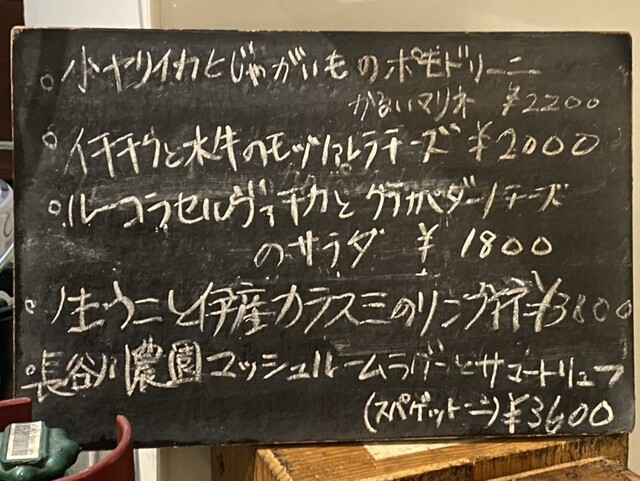 小ヤリイカとじゃがいものポモドリーニ
かるいマリネ ¥2200
イチヂクと水牛のモッツァレラチーズ ¥2000
ルーコラセルヴァチカとグラナパダーノチーズ
のサラダ ¥1800
生ウニと伊産カラスミのリングイネ ¥3800
長谷川農園マッシュルームラグーとサマートリュフ
(スパゲットーニ) ¥3600